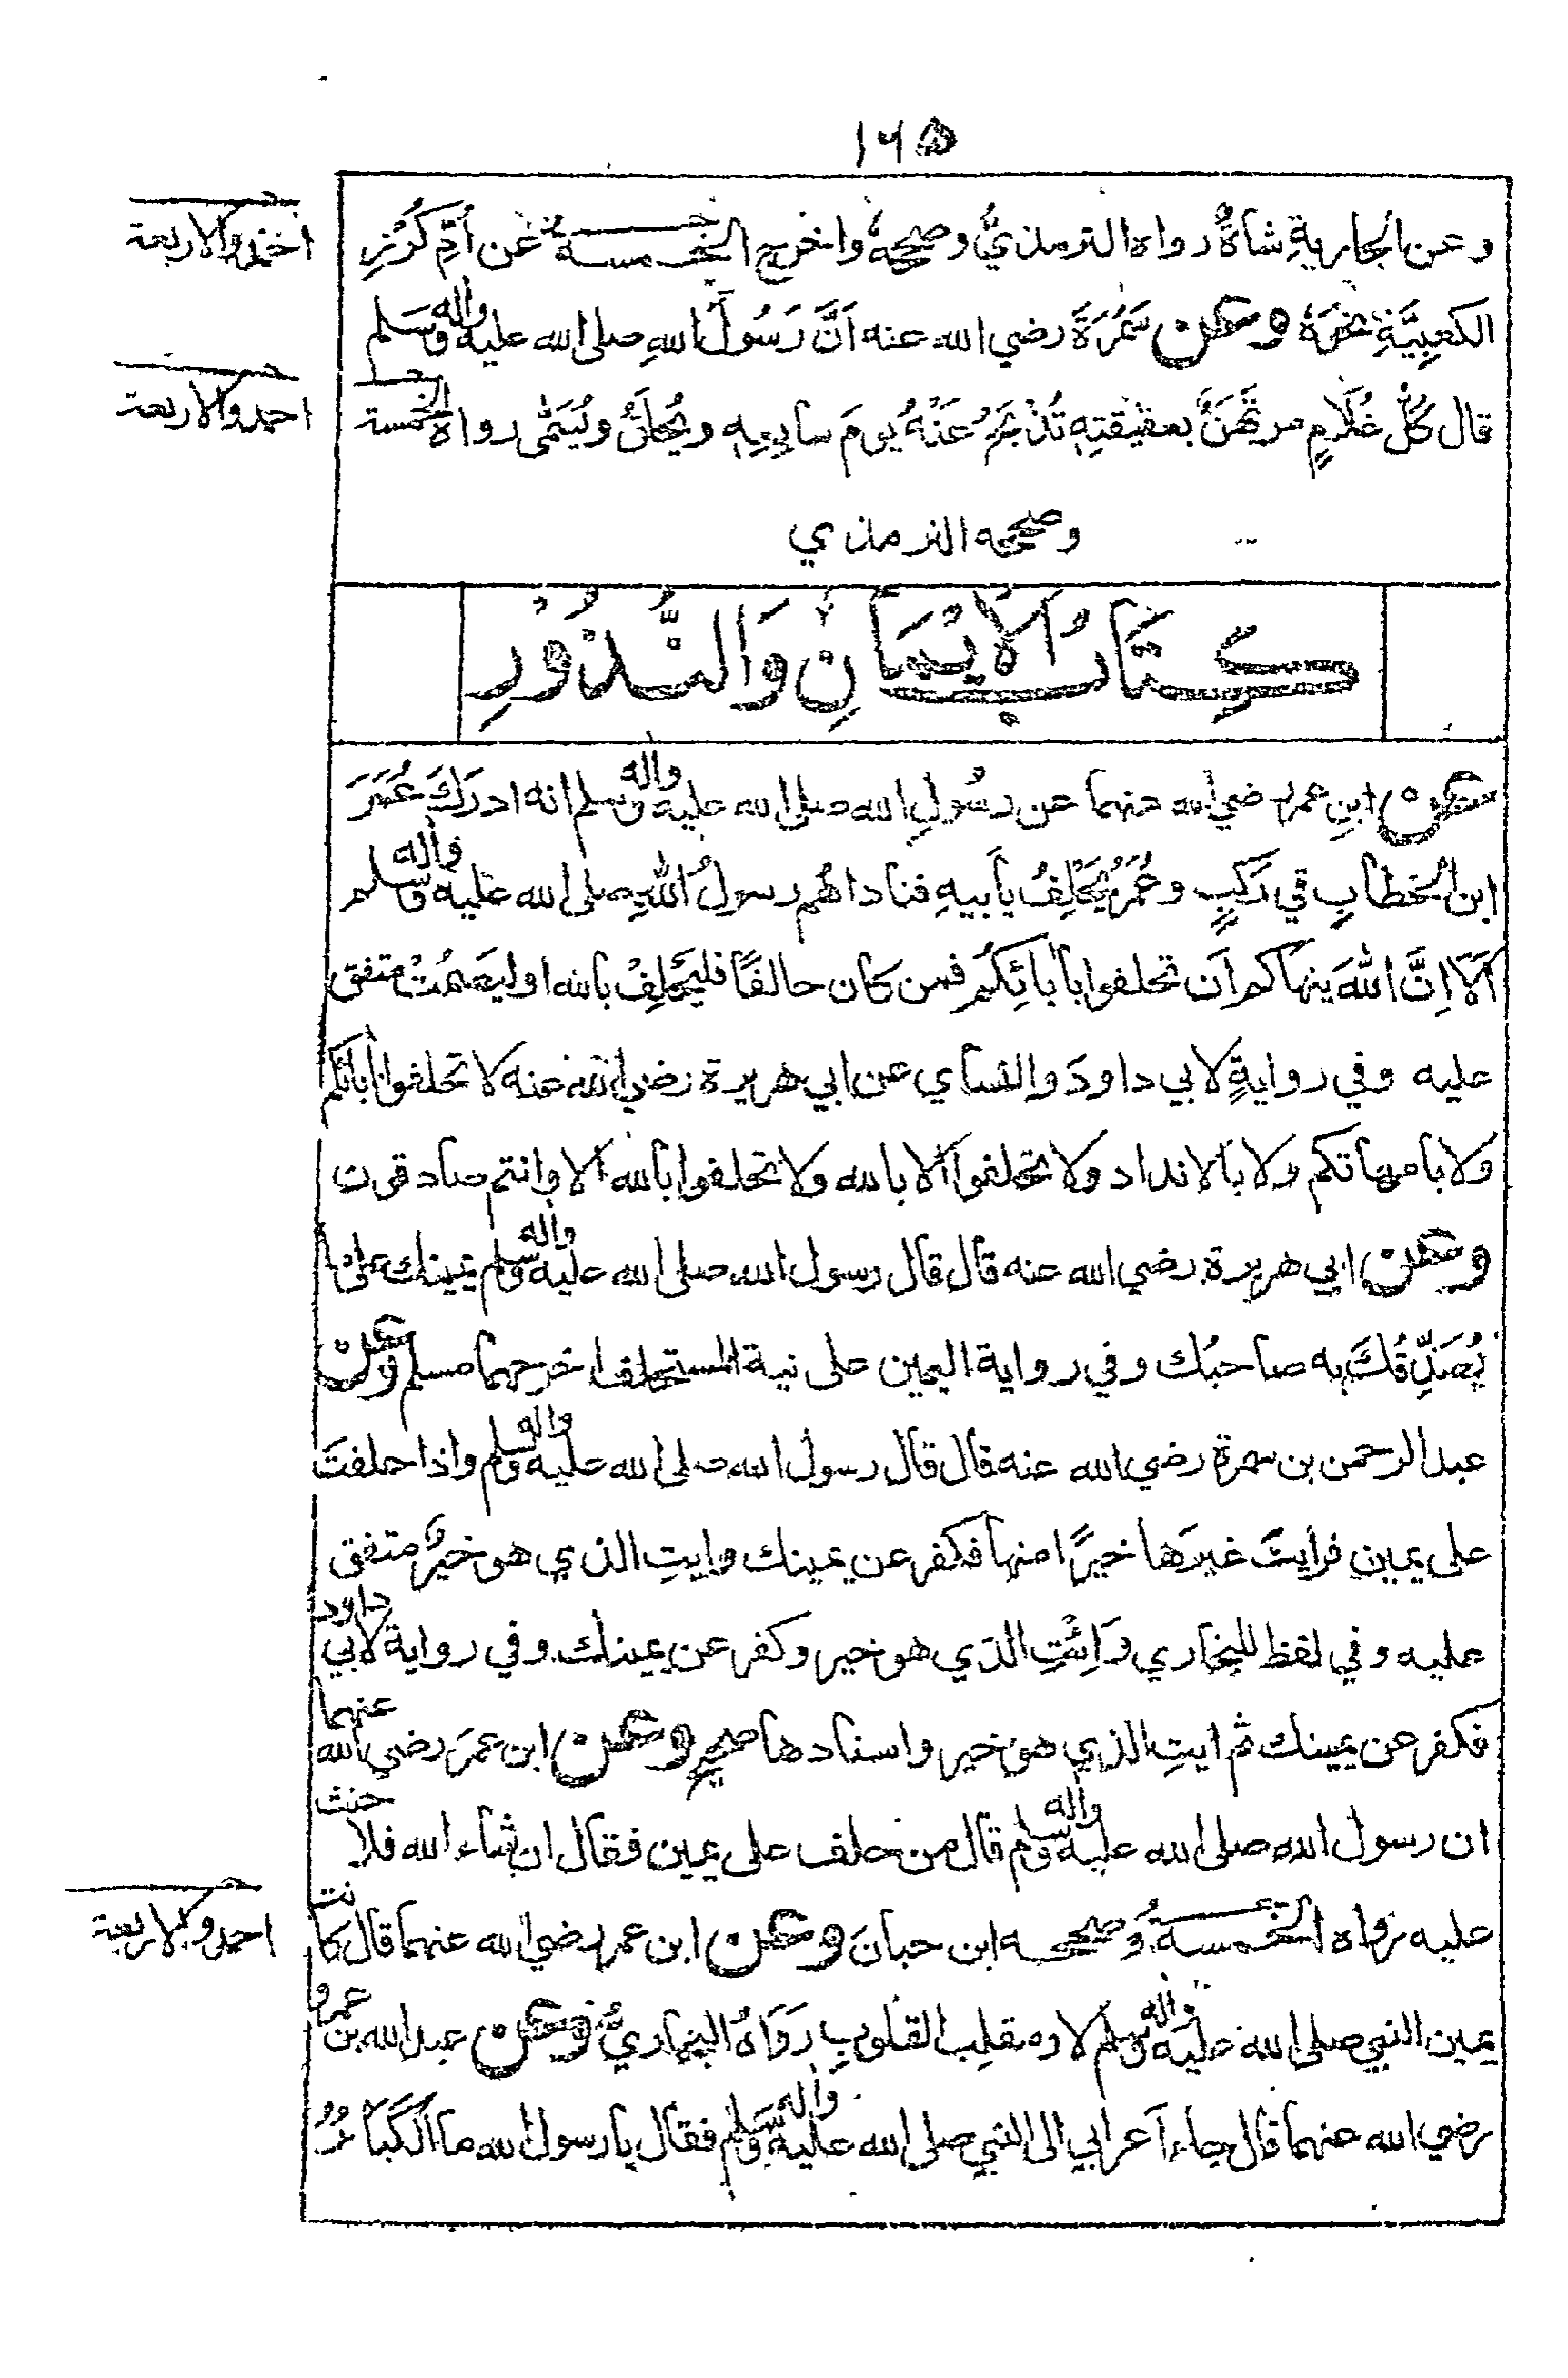 ١٦٥
وعن الجاريةِ شاةٌ رواه الترمذيُّ وصححهُ واخرج الخمسةُ عن اُمِّ كُرْزٍ
احمد والاربعة
الكعبِيَّةِ نحوَهُ وعن سَمُرَةَ رضي الله عنه اَنَّ رَسُولَ اللهِ صلى الله عليه واله وَسَلم
قال كُلُّ غُلَامٍ مرتَهَنٌ بعقيقتِهِ تُذْبَحُ عَنْهُ يومَ سابِعِهِ ويُحلَقُ ويُسَمّٰى رواه الخمسة
احمد والاربعة
وصححه الترمذي
كِتَابُ الْاَيْمَانِ وَالنُّذُوْرِ
عن ابنِ عمر رضي الله عنهما عن رسُولِ الله صلى الله عليه واله وسلم انه ادرَكَ عُمَرَ
ابنَ الخطابِ في رَكبٍ وعُمَرُ يَحْلِفُ بِأَبيهِ فناداهُم رسولُ اللهِ صلى الله عليه واله وسلم
اَلَا اِنَّ اللهَ ينهاكم اَن تحلفوا بآبائِكُم فمن كان حالفًا فليَحلِفْ بالله اوليَصمُتْ متفق
عليه وفي روايةٍ لابي داودَ والنسأي عن ابي هريرة رضي الله عنه لا تحلفوا بأبائكم
ولا بامهاتكم ولا بالانداد ولا تحلفوا الا بالله ولا تحلفوا بالله الا وانتم صادقون
وعن ابي هريرة رضي الله عنه قال قال رسول الله صلى الله عليه واله وسلم يمينك على ما
يُصَدِّقُكَ به صاحبُك وفي رواية اليمين على نية المستحلف اخرجهما مسلم وعن
عبد الرحمن بن سمرة رضي الله عنه قال قال رسول الله صلى الله عليه واله وسلم واذا حلفتَ
على يمين فرأيتَ غيرَها خيرًا منها فكفر عن يمينك وايتِ الذي هو خيرٌ متفق
عليه وفي لفظ للبخاري وَائْتِ الذي هو خير وكفر عن يمينك وفي رواية لابي داود
فكفر عن يمينك ثم ايتِ الذي هو خير واسنادها صحيح وعن ابن عمرَ رضي الله عنهما
ان رسول الله صلى الله عليه واله وسلم قال من حلف على يمين فقال ان شاء الله فلا حنث
عليه رواه الخمسةُ وصححه ابن حبانَ وعن ابن عمر رضي الله عنهما قال كانت
احمد والاربعة
يمين النبي صلى الله عليه واله وسلم لا ومقلِب القلوبِ رَوَاهُ البخاريُّ وعن عبد الله بن عمرو
رضي الله عنهما قال جاء اَعرابي الى النبي صلى الله عليه واله وسلم فقال يا رسول الله ما الكَبَائرُ